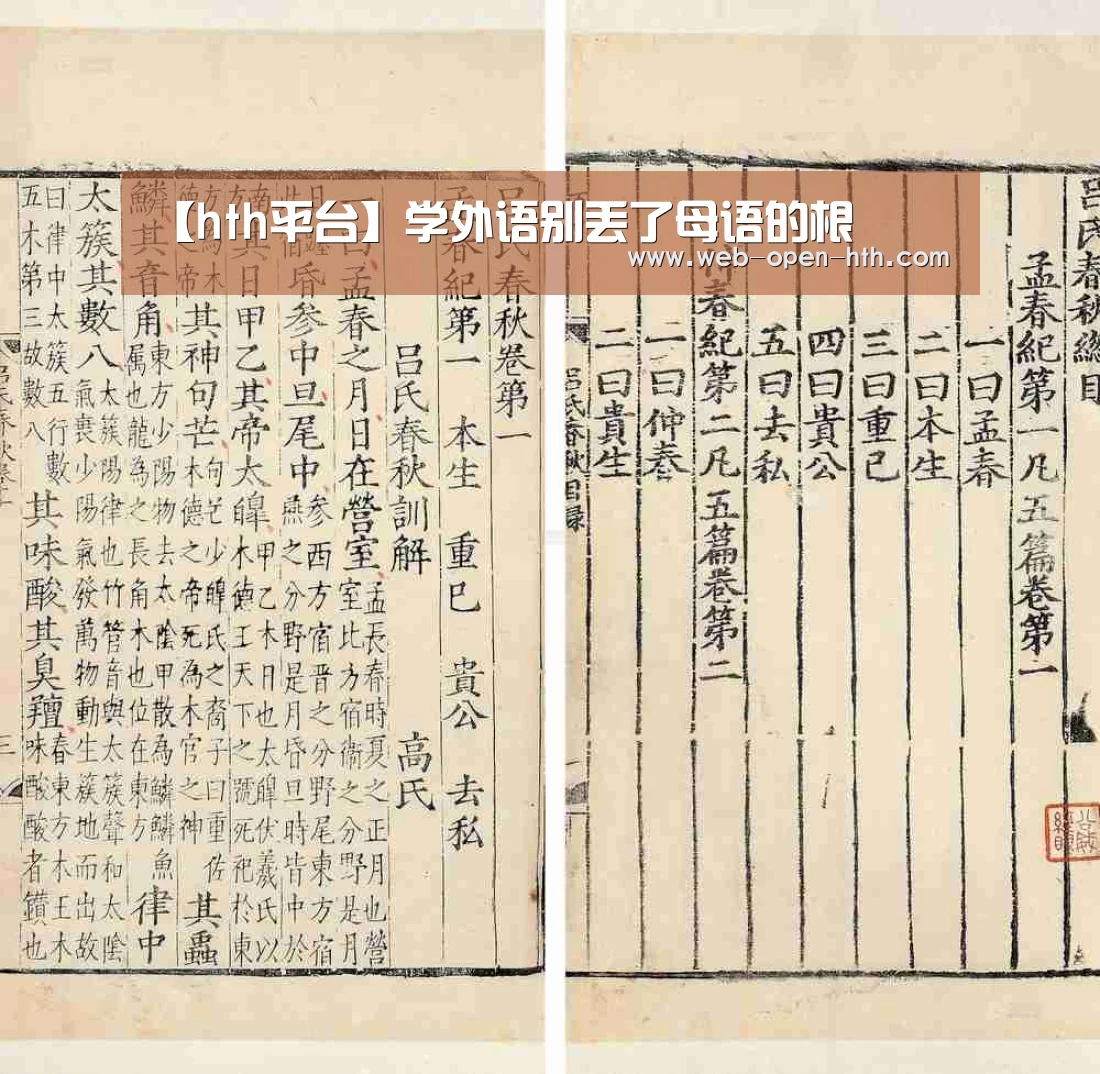 【hth平台】学外语别丢了母语的根
www.web-open-hth.com
呂氏春秋總目
孟春紀第一凡五篇卷第一
一曰孟春
二曰本生
三曰重己
四曰貴公
五曰去私
春紀第二凡五篇卷第二
一曰仲春
二曰貴生
呂氏春秋目録
呂氏春秋卷第一
孟春紀第一 本生 重巳 貴公 去私
呂氏春秋訓解 高氏
一曰孟春之月日在營室
孟長春時夏之正月也營
室北方宿衞之分野是月
昏參中旦尾中
參西方宿晉之分野尾東方宿
燕之分野是月昏旦時皆中於
其日甲乙其帝太皥
甲乙木日也太皥伏羲氏以
木德王天下之號死祀於東
方為木
德之帝
其神句芒
句芒少皥氏之裔子曰重佐
木德之帝死為木官之神
其蟲
鱗其音角
東方少陽物去太陰甲散為鱗鱗魚
屬也龍為之長角木也位在東方
律中
太簇其數八
太簇陽律也竹管音與太簇聲和太陰
氣衰少陽氣發萬物動生簇地而出故
曰律中太簇五行數
五木第三故數八
其味酸其臭羶
春東方木王木
味酸酸者鑽也
呂氏春秋卷一